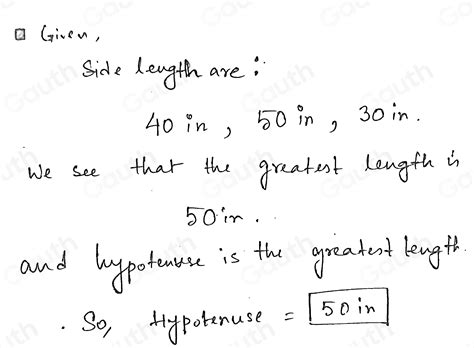 Given,
Side length are :
40 in , 50 in , 30 in.
We see that the greatest length is
50 in.
and hypotenuse is the greatest length.
. So, Hypotenuse = 50 in